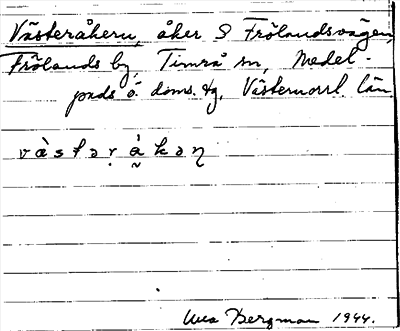 Västeråkern, åker S Frölandsvägen,
Frölands by, Timrå sn, Medel-
pads ö. doms. tg, Västernorrl. län.
v à s t ə ṛ å̀ k ə ɳ
Bergman 1944.